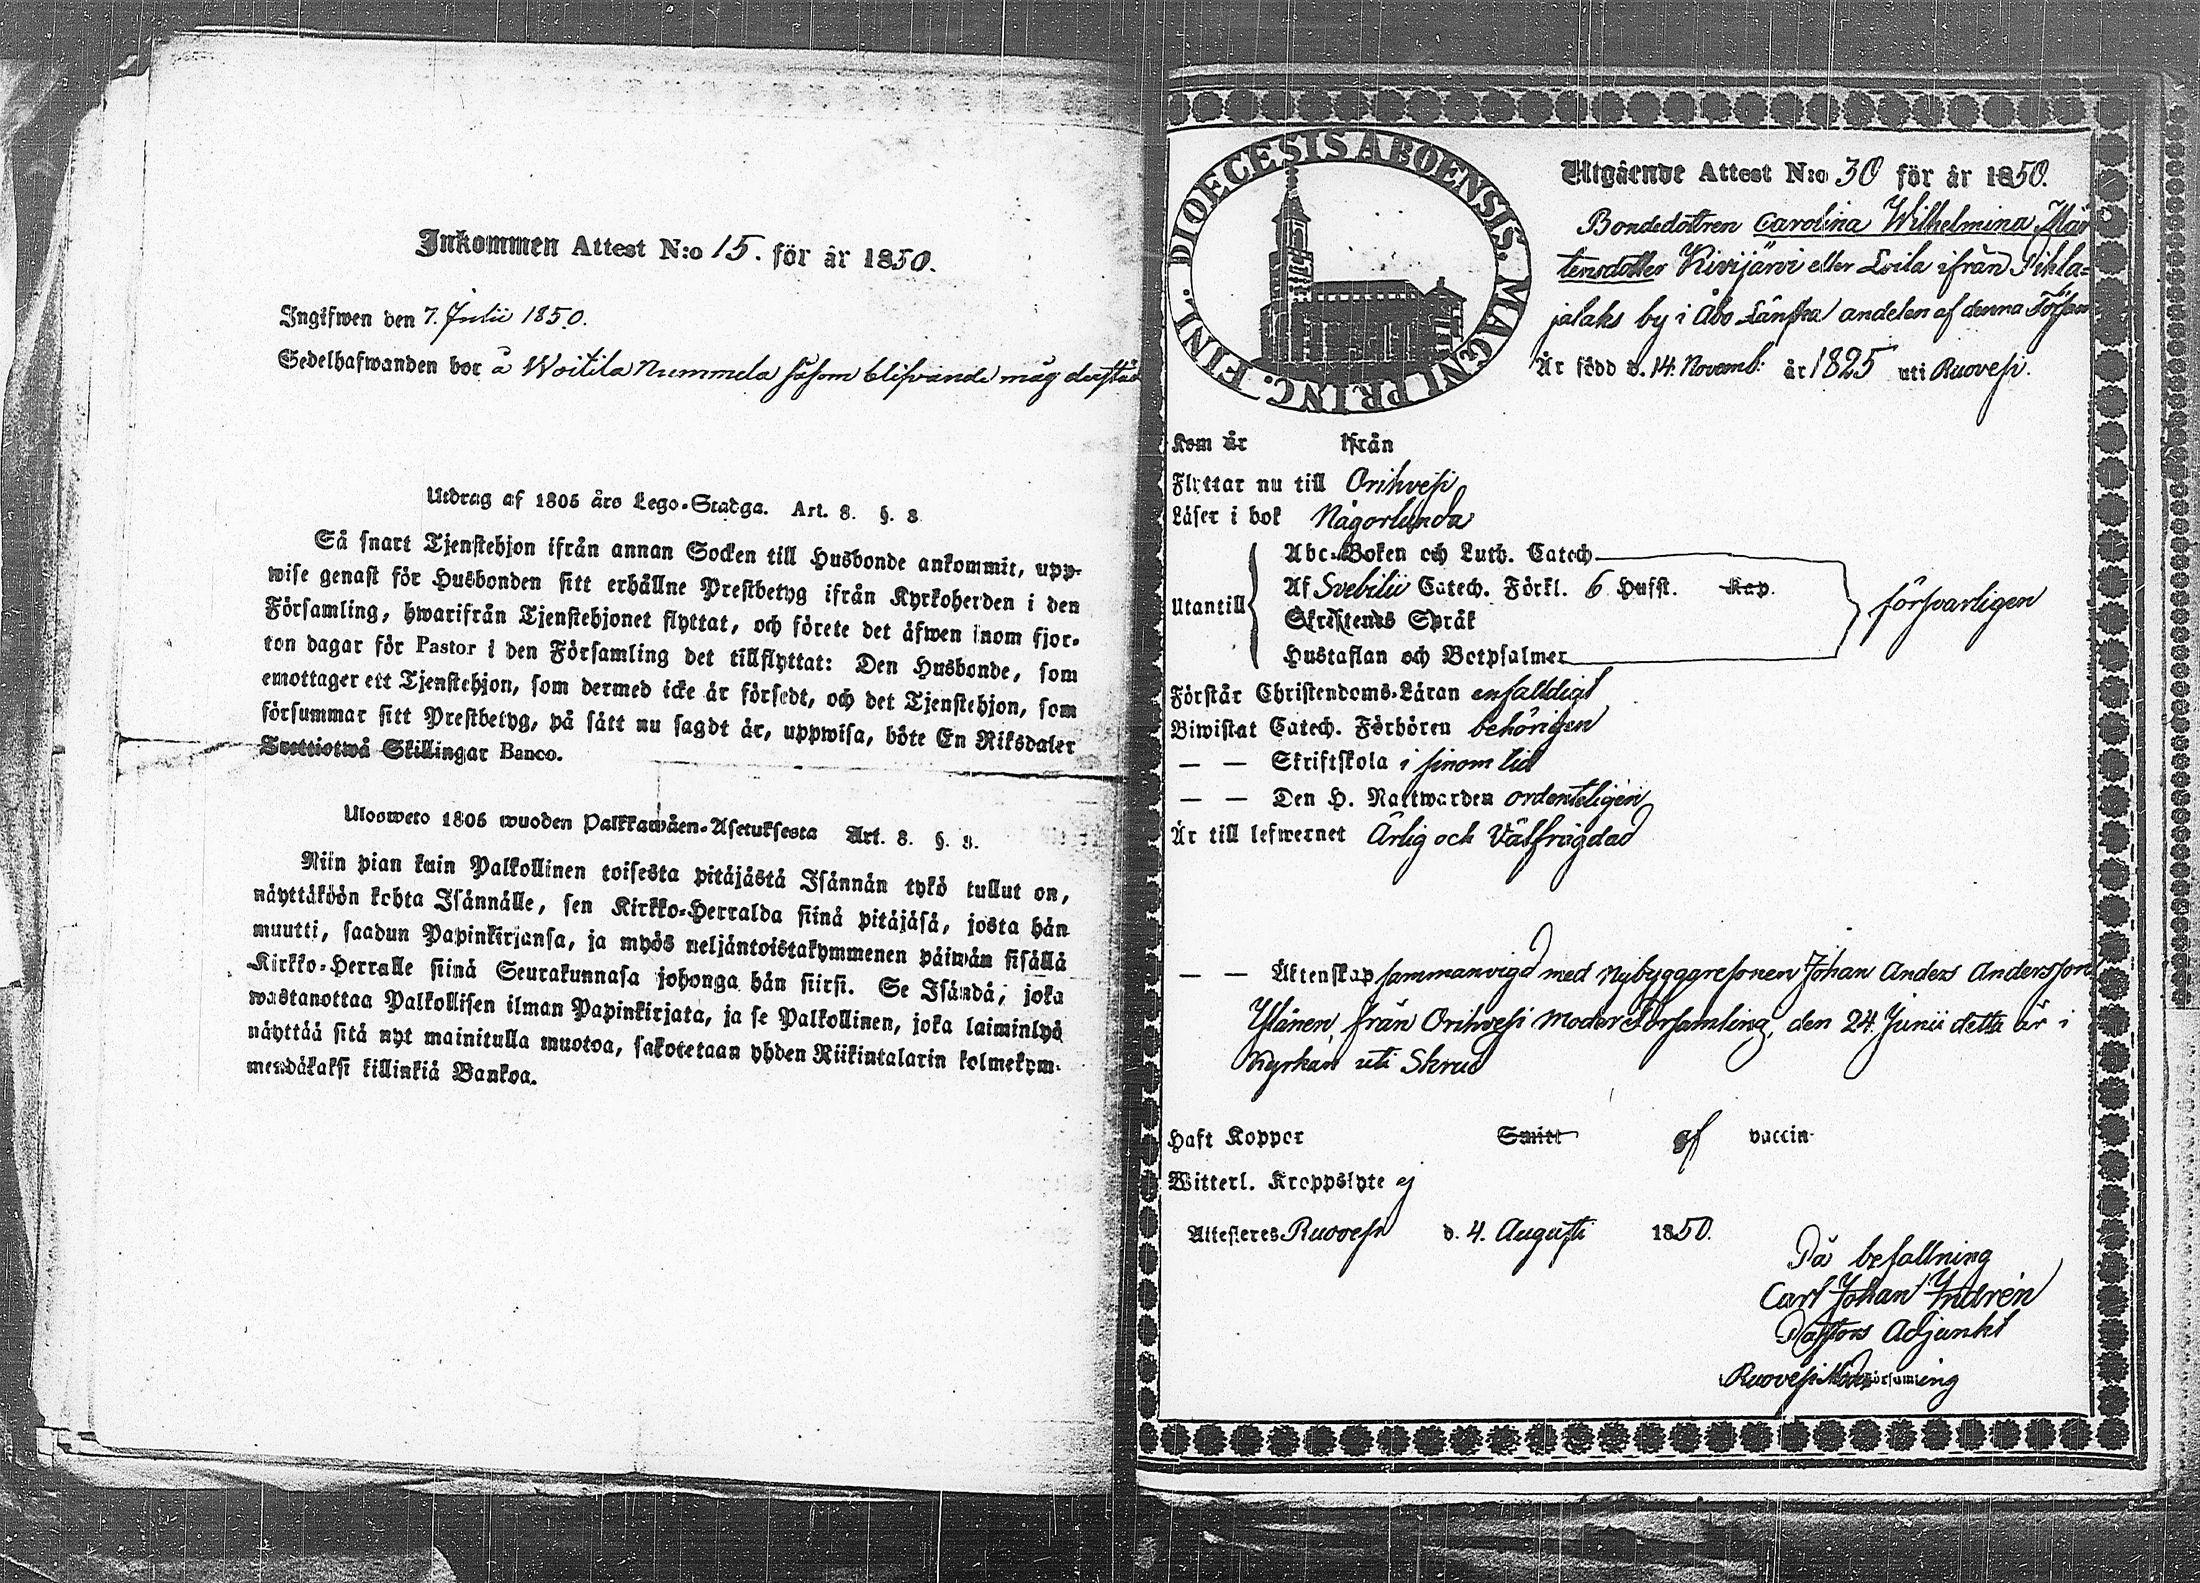 Inkommen Attest N:o 15. för år 1850.
Ingifwen den 7. Julii 1850.
Sedelhafwanden bor å Woitila Nummela såsom blifvande måg derstäd
Utdrag af 1805 års Lego-Stadga. Art. 8. §. 8.
Så snart Tjenstehjon ifrån annan Socken till Husbonde ankommit, upp-
wise genast för Husbonden sitt erhållne Prestbetyg ifrån Kyrkoherden i den
Församling, hwarifrån Tjenstehjonet flyttat, och förete det äfwen inom fjor-
ton dagar för Pastor i den Församling det tillflyttat: Den Husbonde, som
emottager ett Tjenstehjon, som dermed icke är försedt, och det Tjenstehjon, som
försummar sitt Prestbetyg, på sätt nu sagdt är, uppwisa, böte En Riksdaler
Trettiotwå Skillingar Banco.
Ulosweto 1805 wuoden Palkkawäen-Asetuksesta Art. 8. §. 8.
Niin pian kuin Palkollinen toisesta pitäjästä Isännän tykö tullut on,
näyttäköön kohta Isännälle, sen Kirkko-Herralda siinä pitäjäsä, josta hän
muutti, saadun Papinkirjansa, ja myös neljäntoistakymmenen päiwän sisällä
Kirkko-Herralle siinä Seurakunnasa johonga hän siirsi. Se Isändä, joka
wastanottaa Palkollisen ilman Papinkirjata, ja se Palkollinen, joka laiminlyö
näyttää sitä nyt mainitulla muotoa, sakotetaan yhden Riikintalarin kolmekym-
mendäkaksi killinkiä Bankoa.
DIOECESIS ABOENSIS. MAGNI PRINC. FINL.
Utgående Attest N:o 30 för år 1850.
Bondedottren Carolina Wilhelmina Mår
tensdotter Kivijärvi eller Loila ifrån Pihla-
jalaks by i Åbo Länska andelen af denna Försam
Är född d. 14. Novemb: år 1825 uti Ruovesi.
Kom år ifrån
Flyttar nu till Orihvesi
Läser i bok Någorlunda
Utantill
Abc-Boken och Luth. Catech.
Af Svebilii Catech. Förkl. 6 Hufst. Kap.
Skriftenes Språk
Hustaflan och Botpsalmer
försvarligen
Förstår Christendoms-Läran enfaldigt
Biwistat Catech. Förhören behörigen
— — Skriftskola i sinom tid
— — Den H. Nattwarden ordenteligen
Är till lefwernet Ärlig och Välfrägdad
— — Äktenskap sammanvigd med Nybyggaresonen Johan Anders Andersson
Ylänen, från Orihvesi Moder Församling, den 24. Junii detta år i
Kyrkan uti
Haft Koppor Smitt af vaccin
Witterl. Kroppslyte ej
Attesteres Ruovesi d. 4. Augusti 1850.
På befallning
Carl Johan Indrén
Pastors Adjunkt
Ruovesi Moderförsamling